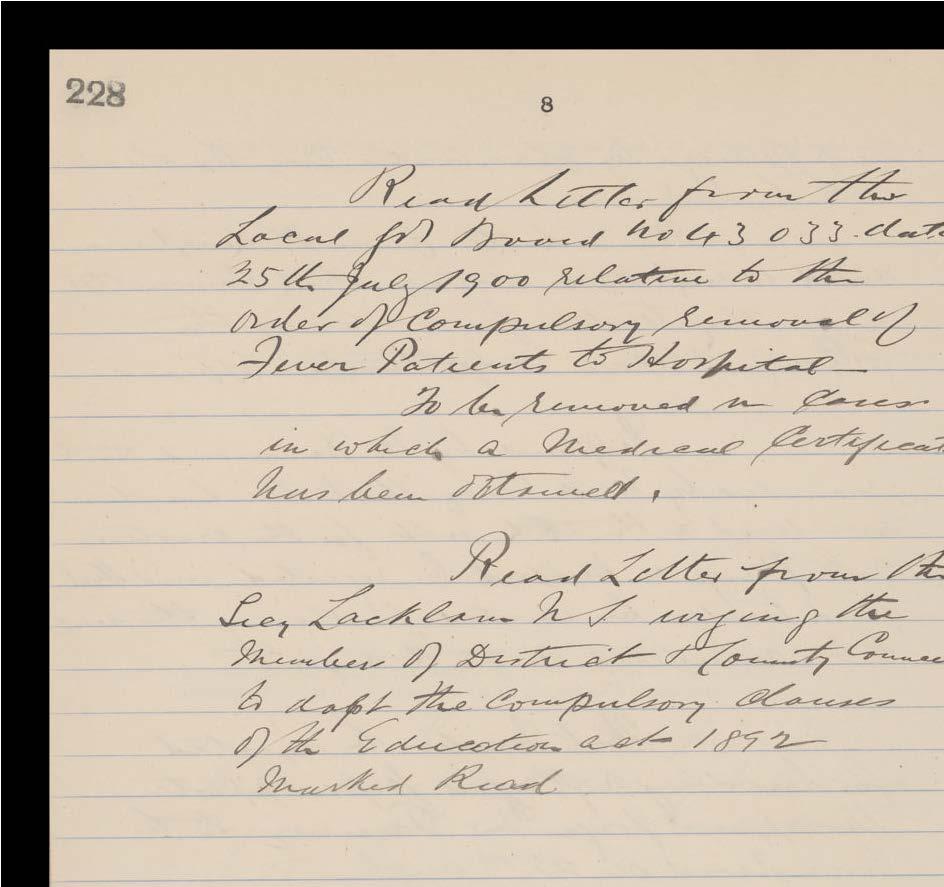 228
8
Read Letter from the
Local Gvt Board No 43033. date
25th July 1900 relative to the
order of Compulsory removal of
Fever Patients to Hospital
To be removed in Cases
in which a Medical Certificat
has been obtained.
Read Letter from the
Secy Lacklom N S urging the
Members of District & County Counci
to adopt the Compulsory Clauses
of the Education act 1892
Marked Read